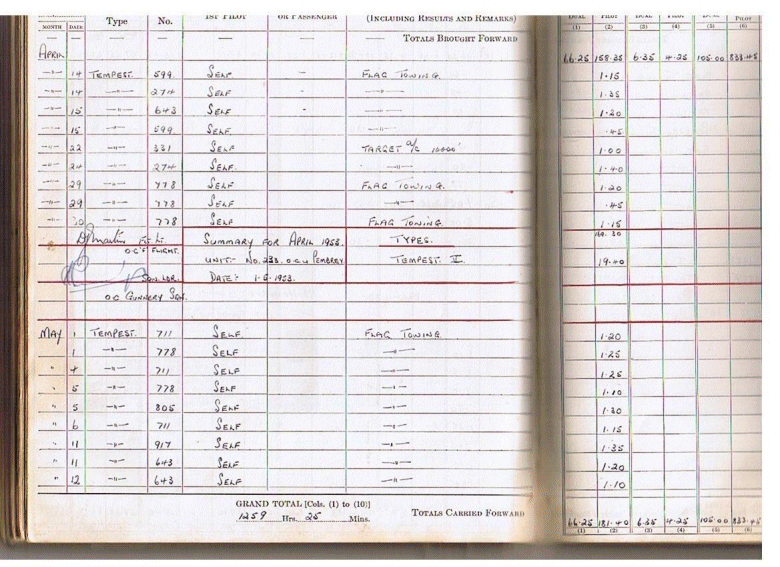 MONTH DATE Type No. 1ST PILOT OR PASSENGER (INCLUDING RESULTS AND REMARKS) DUAL PILOT DUAL PILOT DUAL PILOT
(1) (2) (3) (4) (5) (6)
— — — — — — TOTALS BROUGHT FORWARD
APRIL 66.25 158.25 6.35 4.25 105.00 833.45
—"— 14 TEMPEST. 599 SELF - FLAG TOWING. 1.15
—"— 14 —"— 274 SELF - —"— 1.35
—"— 15 —"— 643 SELF - —"— 1.20
15 —"— 599 SELF —"— .45
—"— 22 —"— 331 SELF TARGET A/C 10000' 1.00
—"— 24 —"— 274 SELF. —"— 1.40
—"— 29 —"— 778 SELF FLAG TOWING. 1.20
—"— 29 —"— 778 SELF —"— .45
30 —"— 778 SELF FLAG TOWING. 1.15
Martin Ft. Lt. SUMMARY FOR APRIL 1953. TYPES.
O.C. FLIGHT. UNIT:- No. 233. O.C.U PEMBREY. TEMPEST V. 19.40
SQN. LDR. DATE:- 1-5-1953.
O.C GUNNERY SQN.
MAY 1 TEMPEST. 711 SELF. FLAG TOWING. 1.20
1 —"— 778 SELF —"— 1.25
" 4 —"— 711 SELF —"— 1.25
" 5 —"— 778 SELF —"— 1.10
" 5 —"— 805 SELF —"— 1.30
" 6 —"— 711 SELF —"— 1.15
" 11 —"— 917 SELF —"— 1.35
" 11 —"— 643 SELF —"— 1.20
" 12 —"— 643 SELF —"— 1.10
GRAND TOTAL [Cols. (1) to (10)]
1259 Hrs. 25 Mins. TOTALS CARRIED FORWARD 66.25 181.40 6.35 4.25 105.00 833.45
(1) (2) (3) (4) (5) (6)